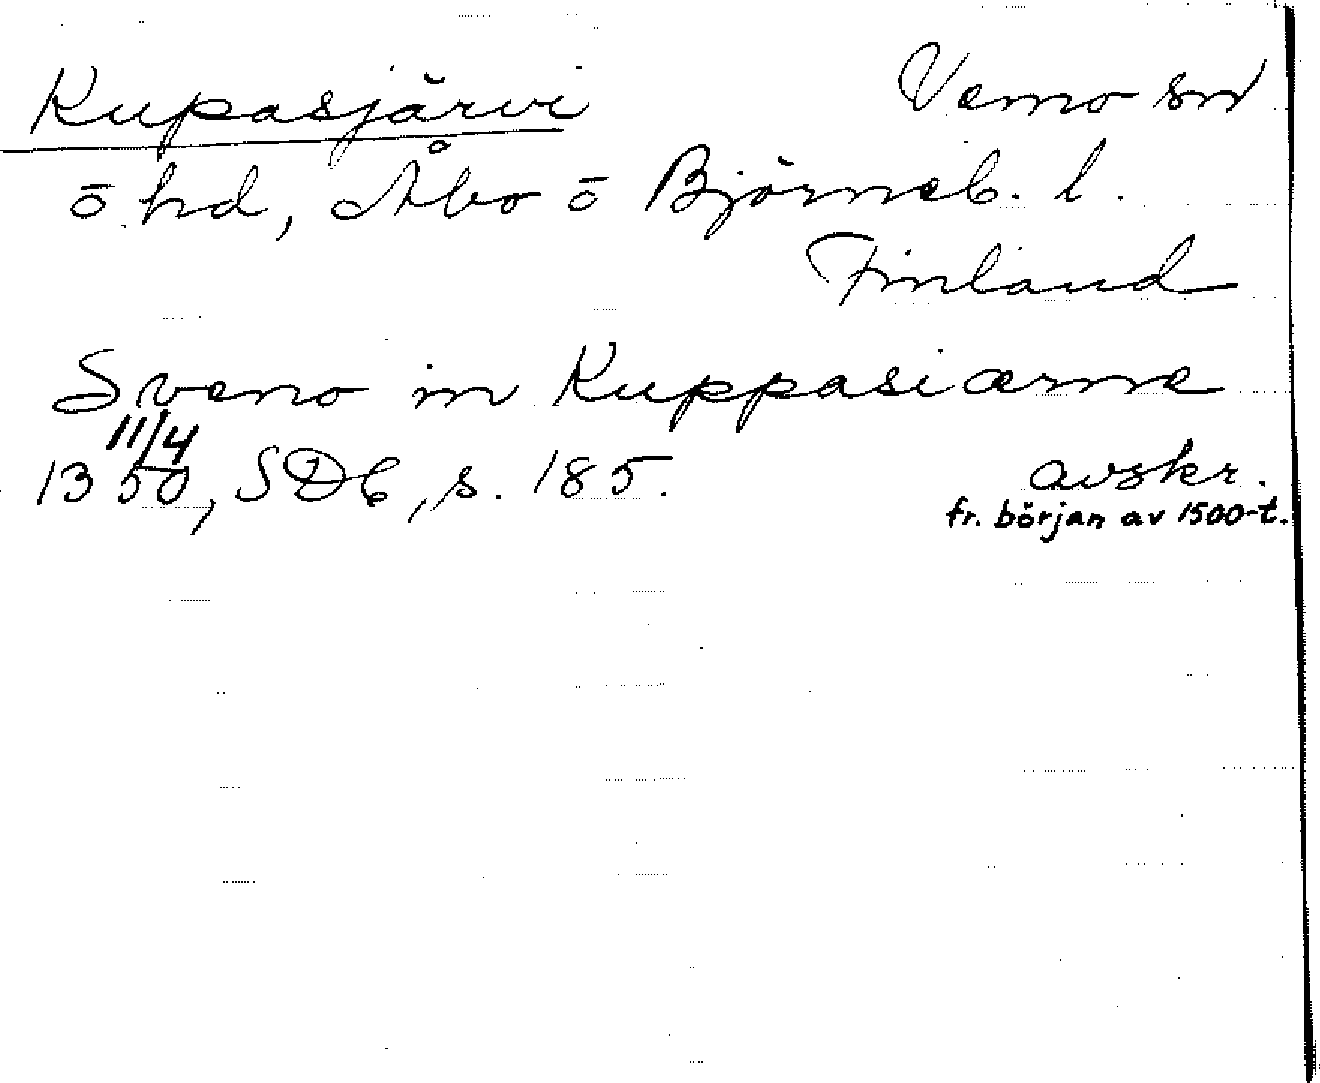 Kupasjärvi Vemo sn
o hd, Åbo o Björneb. l.
Finland
Sveno in Kuppasiærne
11/4
1350, SD6, s. 185. avskr.
fr. början av 1500-t.